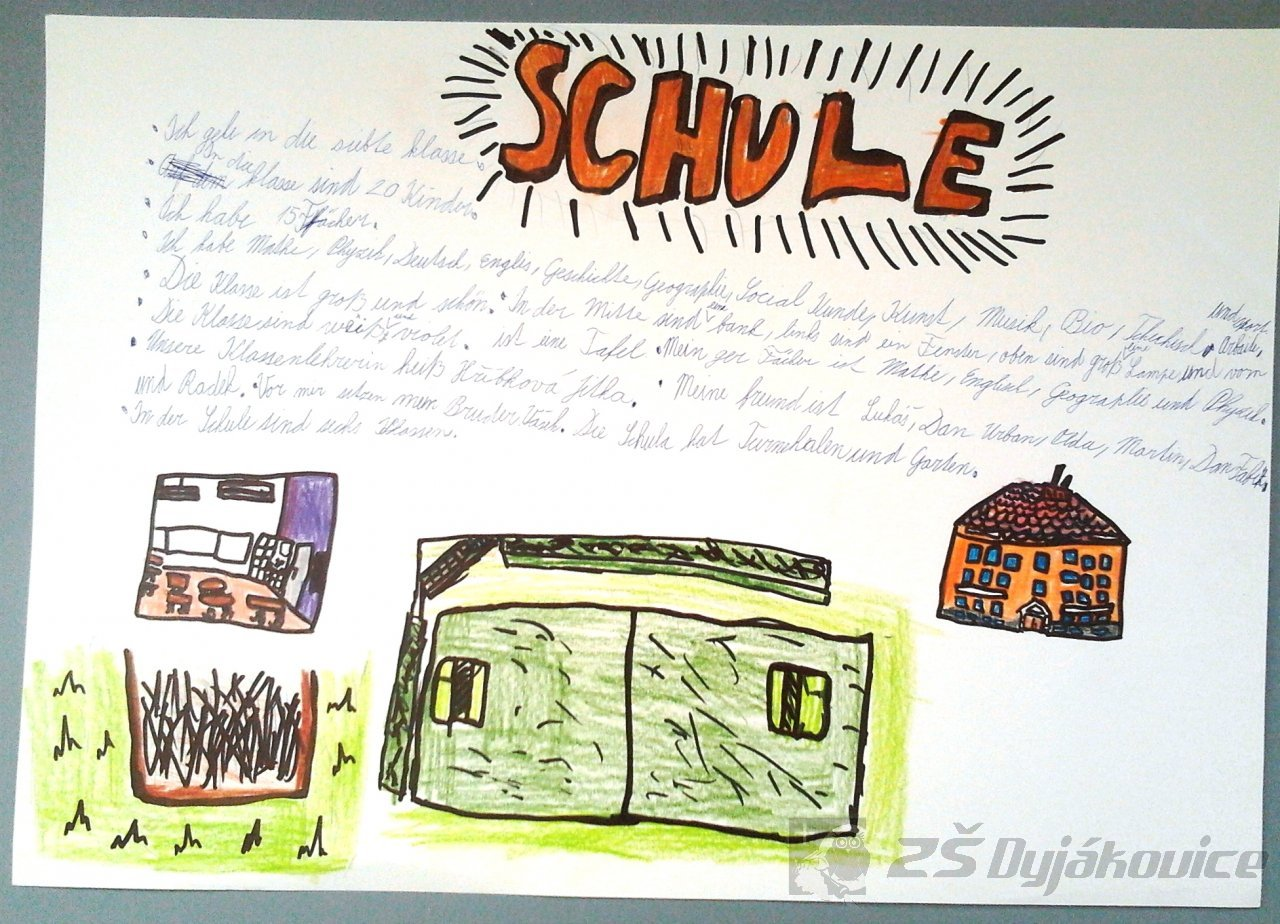 SCHULE
• Ich gehe in die siebte Klasse.
• In die Klasse sind 20 Kinder.
• Ich habe 15 Fächer.
• Ich habe Mathe, Physik, Deutsch, Englis, Geschichte, Geographie, Social Kunde, Kunst, Musik, Bio, Tschechisch, Arbeite, und sport.
• Die Klasse ist groß und schön. • In der Mitte sind eine bank, links sind ein Fenster, oben sind groß eine Lampe, und vorn
• Die Klasse sind weiß, eine violet. ist eine Tafel • Mein ger Fächer ist Mathe, Englisch, Geographie und Physik.
• Unsere Klassenlehrerin heiß Hrubková Jitka. • Meine freund ist Lukáš, Dan Urban, Olda, Martin, Dan
und Radek. • Vor mir sitzen mein Bruder Vašk. Die Schula hat Turnehalen und Garten.
• In der Schule sind sechs Klassen.
ZŠ Dyjákovice